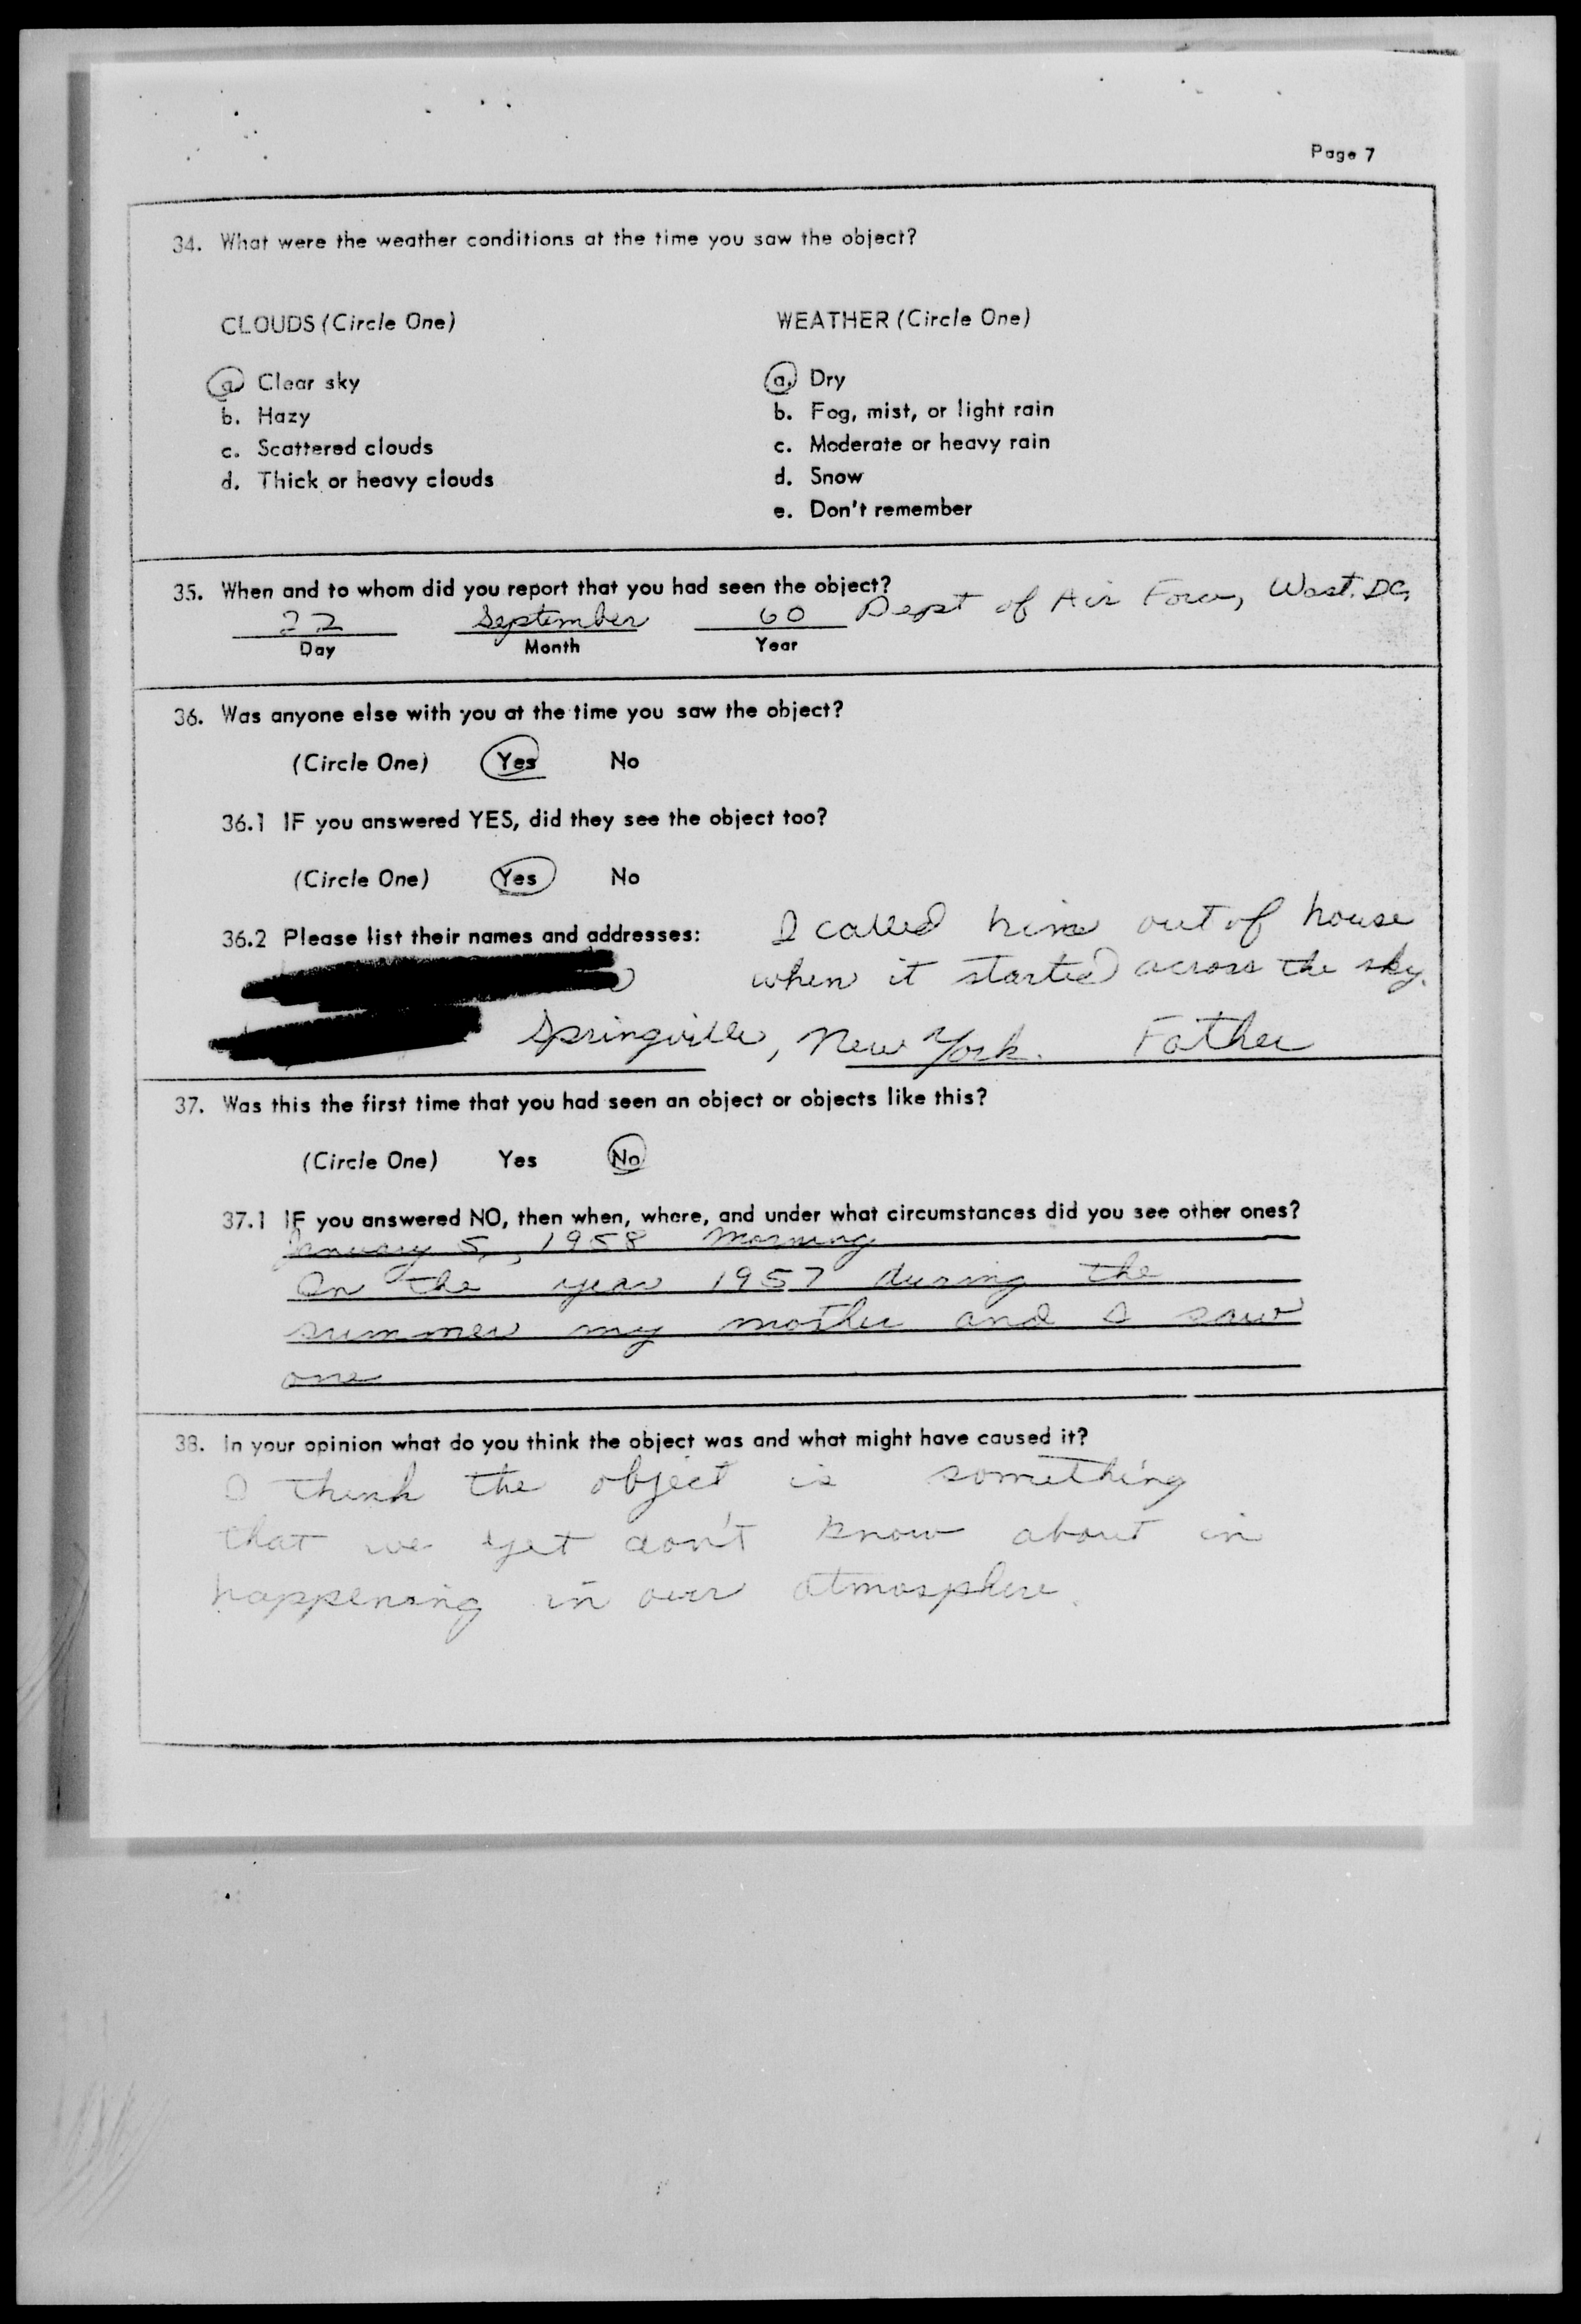 Page 7
34. What were the weather conditions at the time you saw the object?
CLOUDS (Circle One)
a. Clear sky
b. Hazy
c. Scattered clouds
d. Thick or heavy clouds
WEATHER (Circle One)
a. Dry
b. Fog, mist, or light rain
c. Moderate or heavy rain
d. Snow
e. Don't remember
35. When and to whom did you report that you had seen the object?
22 September 60 Dept of Air Force, Wast. DC,
Day Month Year
36. Was anyone else with you at the time you saw the object?
(Circle One) Yes No
36.1 IF you answered YES, did they see the object too?
(Circle One) Yes No
36.2 Please list their names and addresses:
I called him out of house
when it started across the sky.
Springville, New York. Father
37. Was this the first time that you had seen an object or objects like this?
(Circle One) Yes No
37.1 IF you answered NO, then when, where, and under what circumstances did you see other ones?
January 5, 1958 Morning
In the year 1957 during the
summer my mother and I saw
one
38. In your opinion what do you think the object was and what might have caused it?
I think the object is something
that we yet don't know about in
happening in our atmosphere.